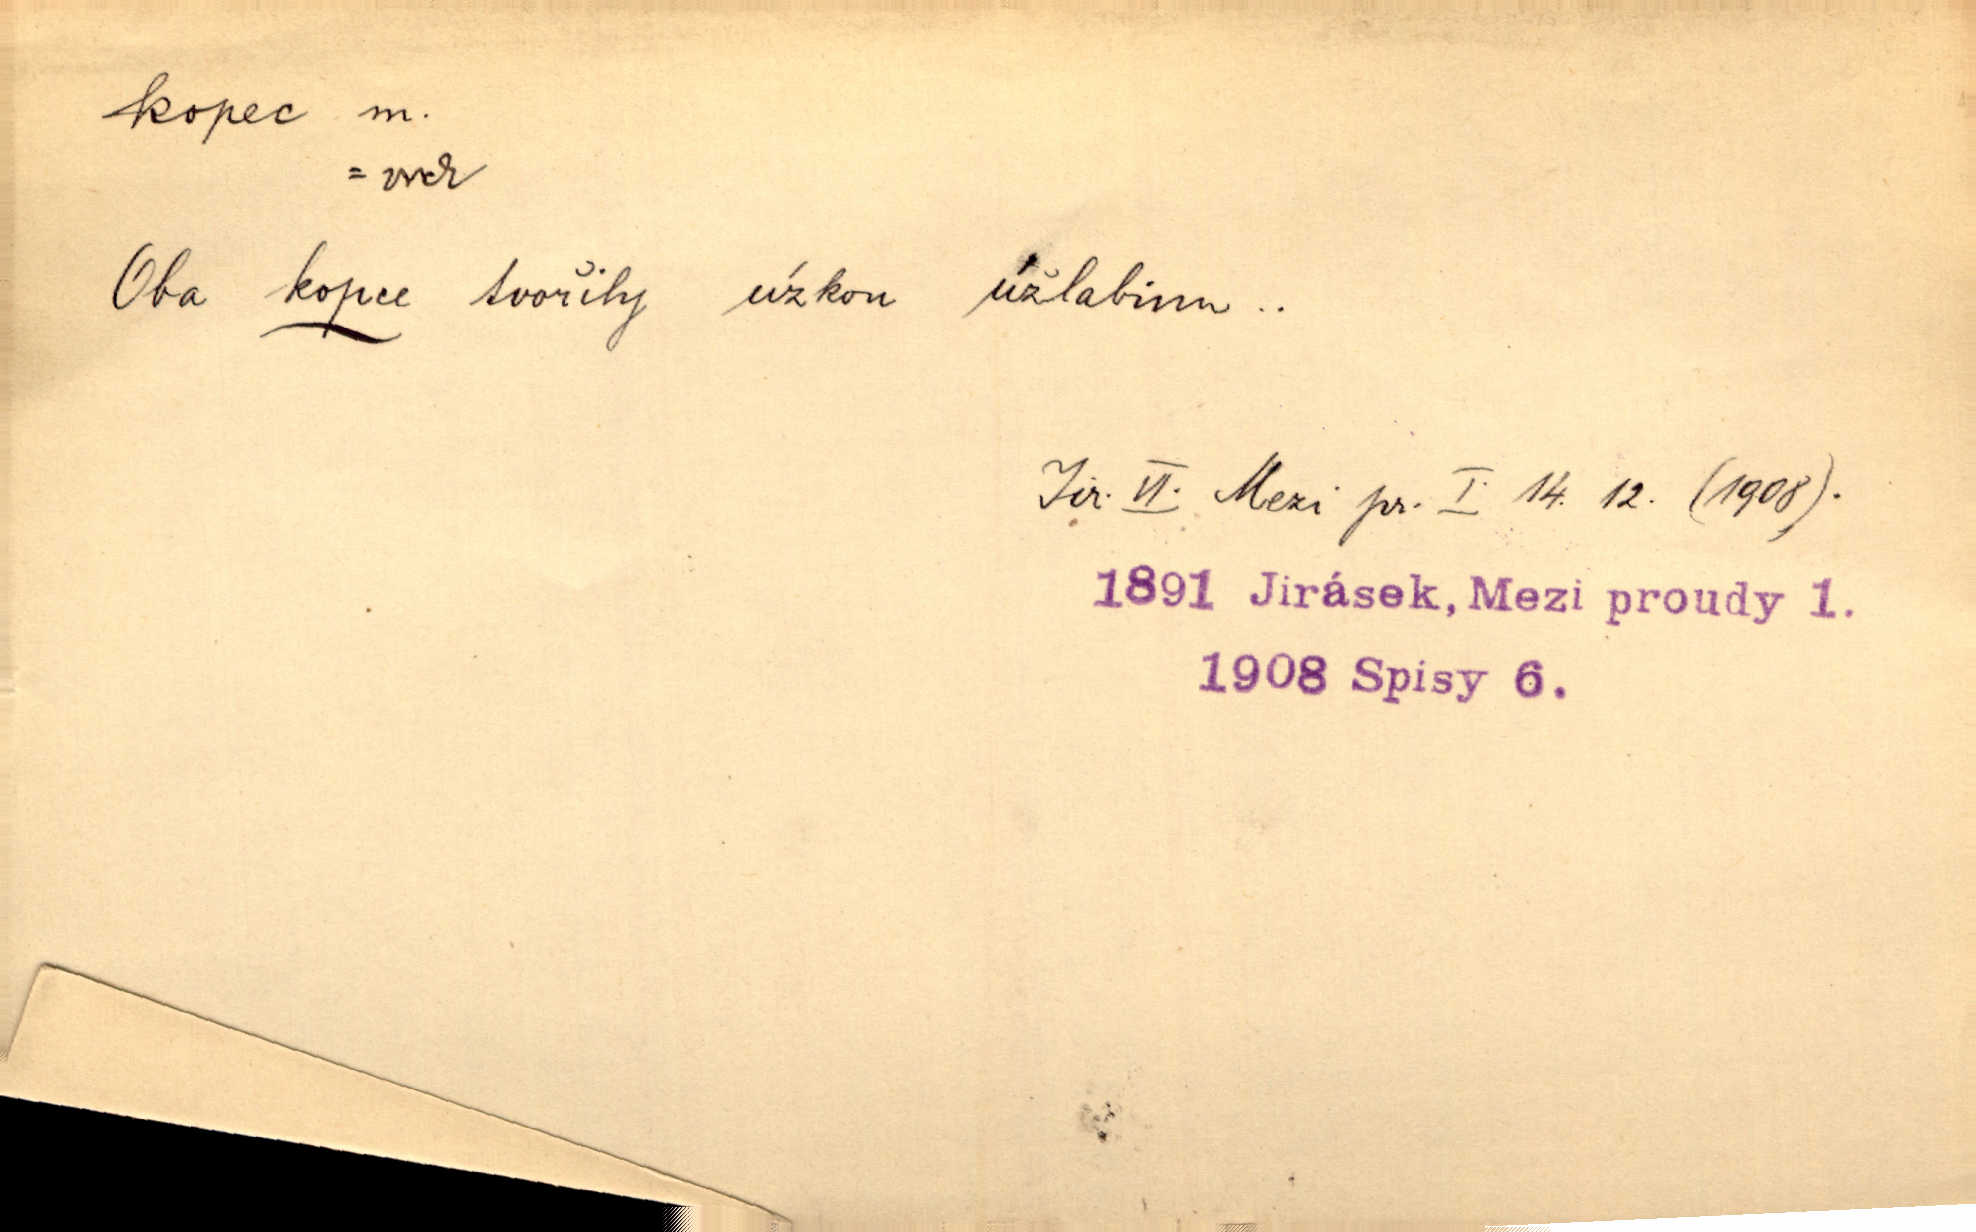 kopec m.
= vrch
Oba kopce tvořily úzkou úžlabinu ..
Jir. VI. Mezi pr. I. 14. 12. (1908).
1891 Jirásek, Mezi proudy 1.
1908 Spisy 6.